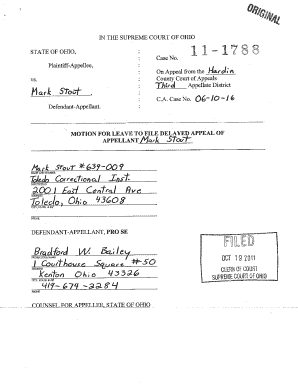 ORIGINAL
IN THE SUPREME COURT OF OHIO
STATE OF OHIO,
Plaintiff-Appellee,
vs.
Mark Stout
Defendant-Appellant.
11-1788
Case No.
On Appeal from the Hardin
County Court of Appeals
Third Appellate District
C.A. Case No. 06-10-16
MOTION FOR LEAVE TO FILE DELAYED APPEAL OF
APPELLANT Mark Stout
Mark Stout #639-009
Toledo Correctional Inst.
2001 East Central Ave
Toledo, Ohio 43608
PHONE
DEFENDANT-APPELLANT, PRO SE
Bradford W. Bailey
1 Courthouse Square #50
Kenton Ohio 43326
419-674-2284
PHONE
COUNSEL FOR APPELLEE, STATE OF OHIO
FILED
OCT 19 2011
CLERK OF COURT
SUPREME COURT OF OHIO